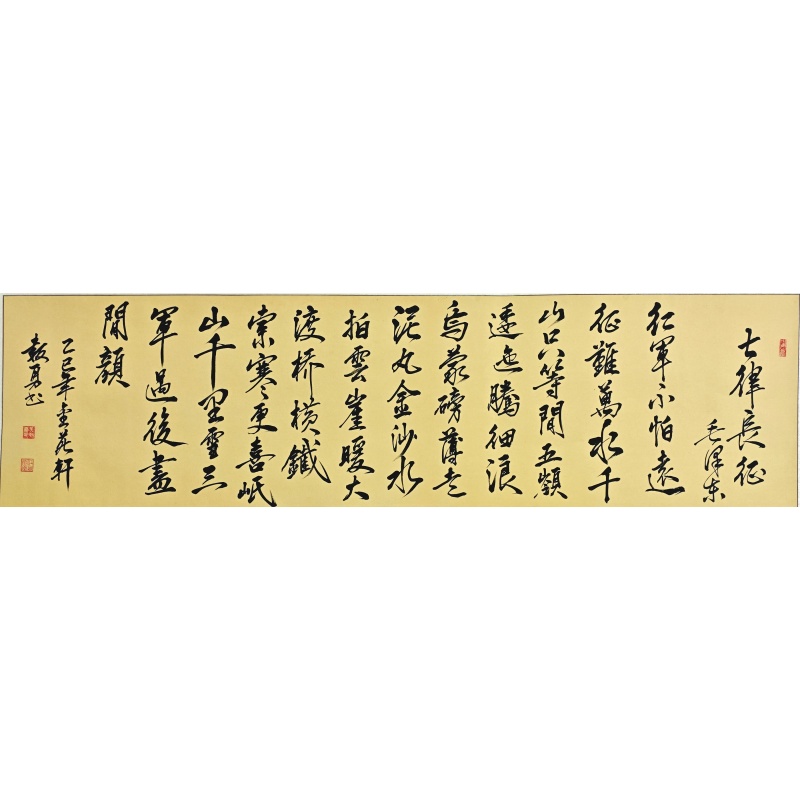 七律長征
毛澤东
红軍不怕遠
征難萬水千
山只等閒五嶺
逶迤騰细浪
烏蒙磅薄走
泥丸金沙水
拍雲崖暖大
渡桥横鐵
索寒更喜岷
山千里雪三
軍過後盡
開顏
乙巳年軒
书